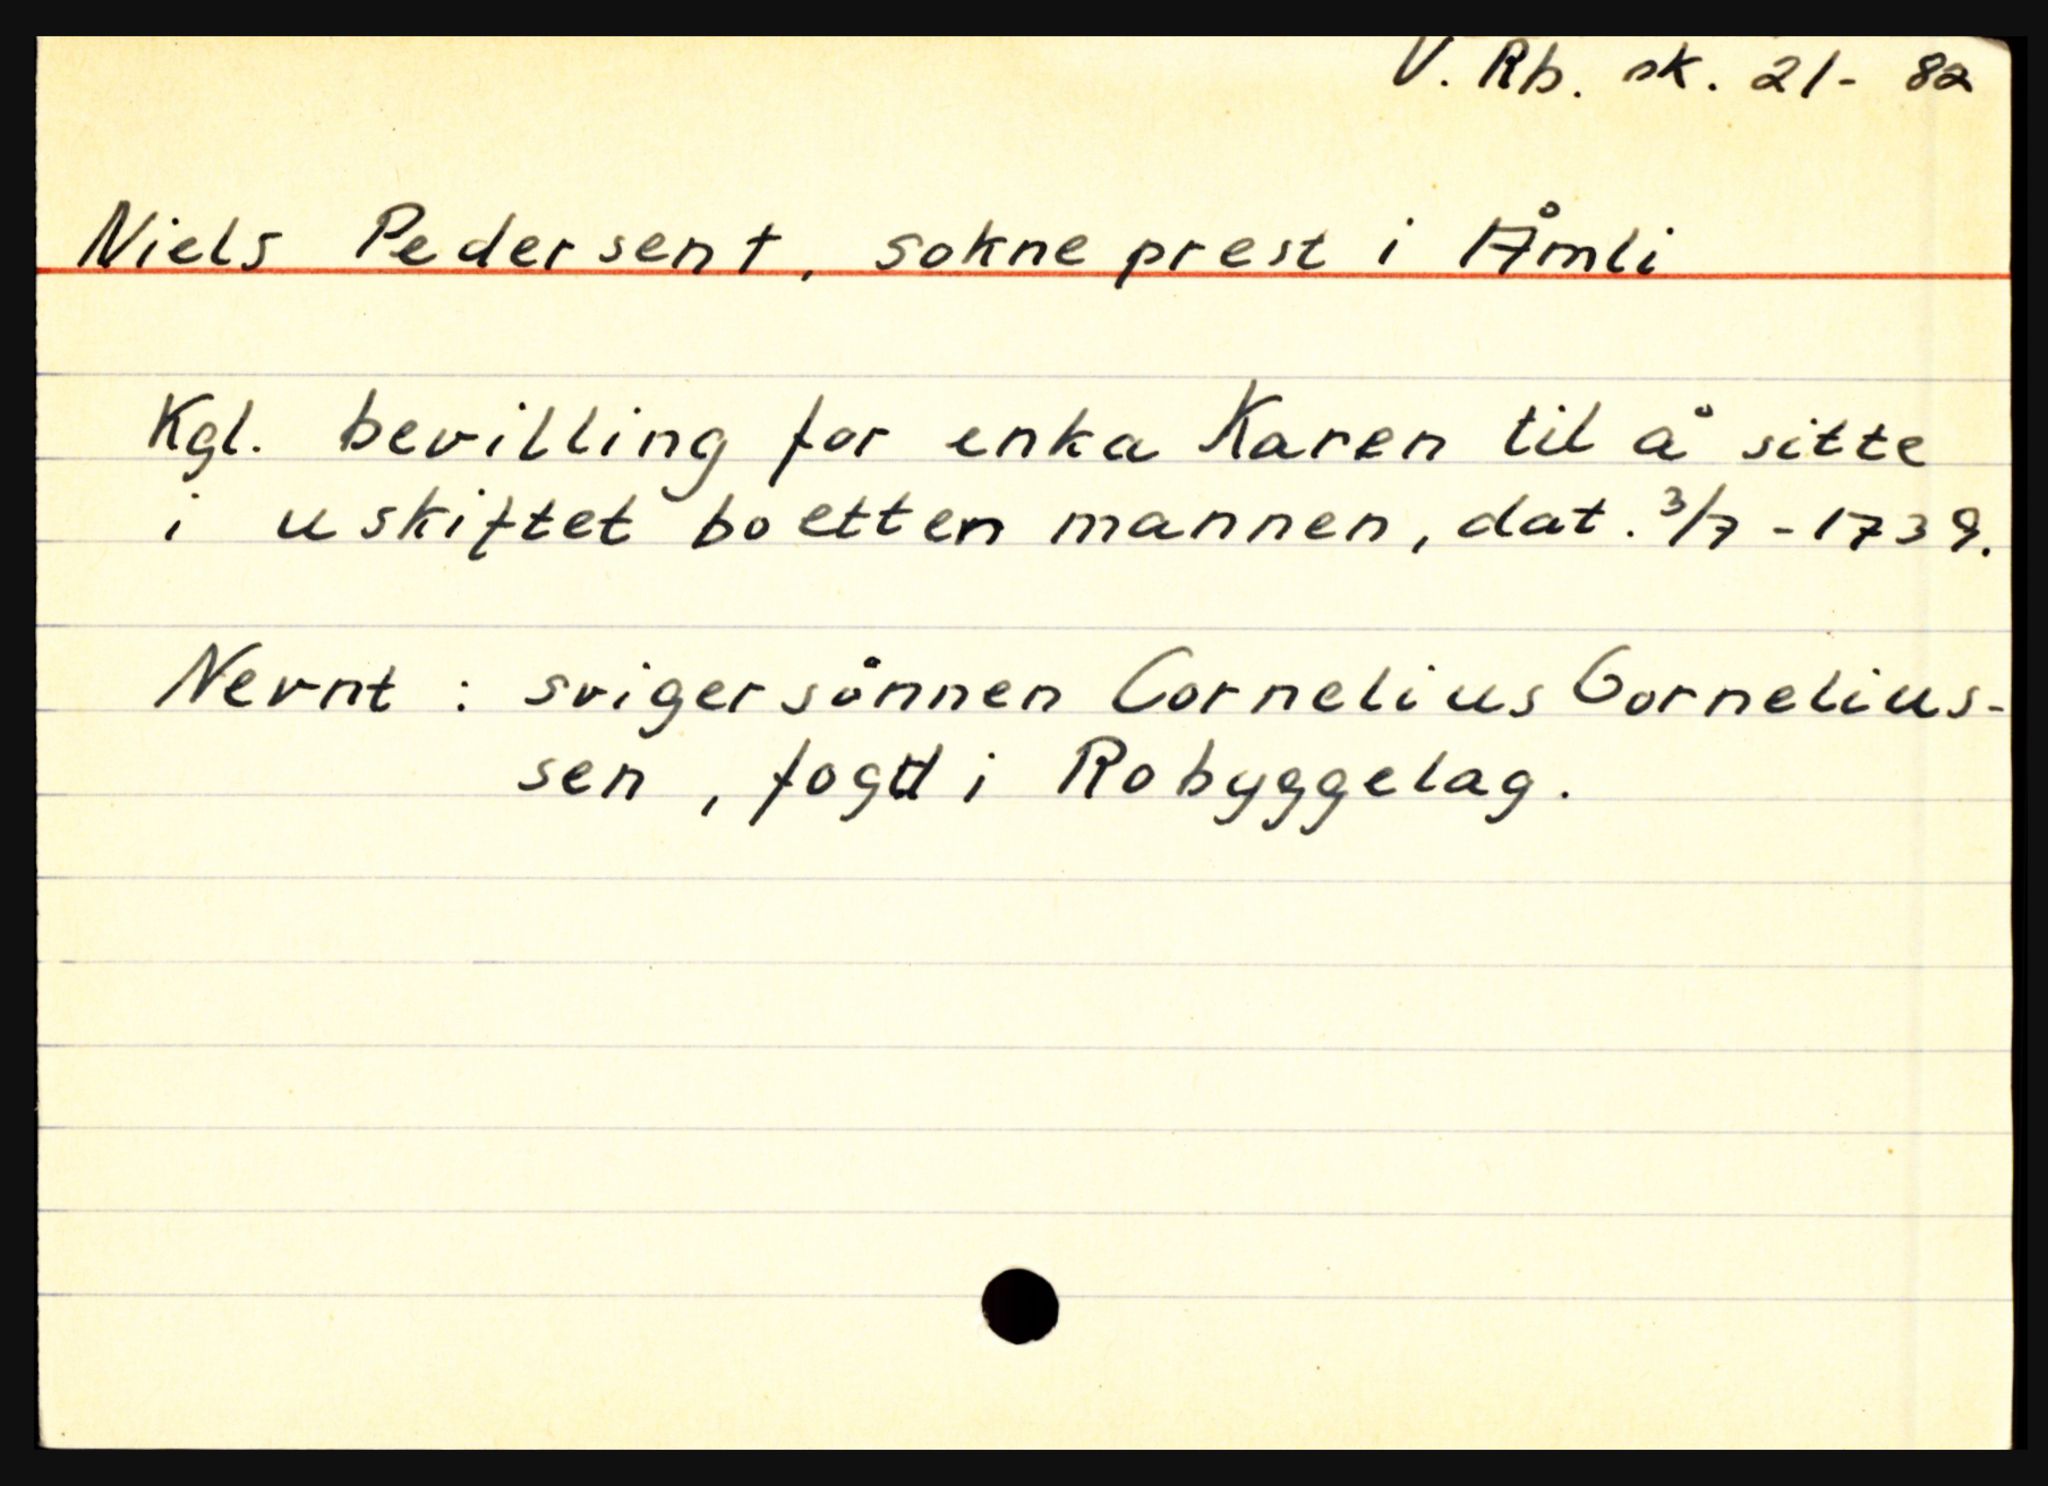 V. Rb. sk. 21- 82
Niels Pedersen †, sokneprest i Åmli
Kgl. bevilling for enka Karen til å sitte
i uskiftet bo etter mannen, dat. 3/7 - 1739.
Nevnt : svigersønnen Cornelius Cornelius-
sen, fogd i Robyggelag.